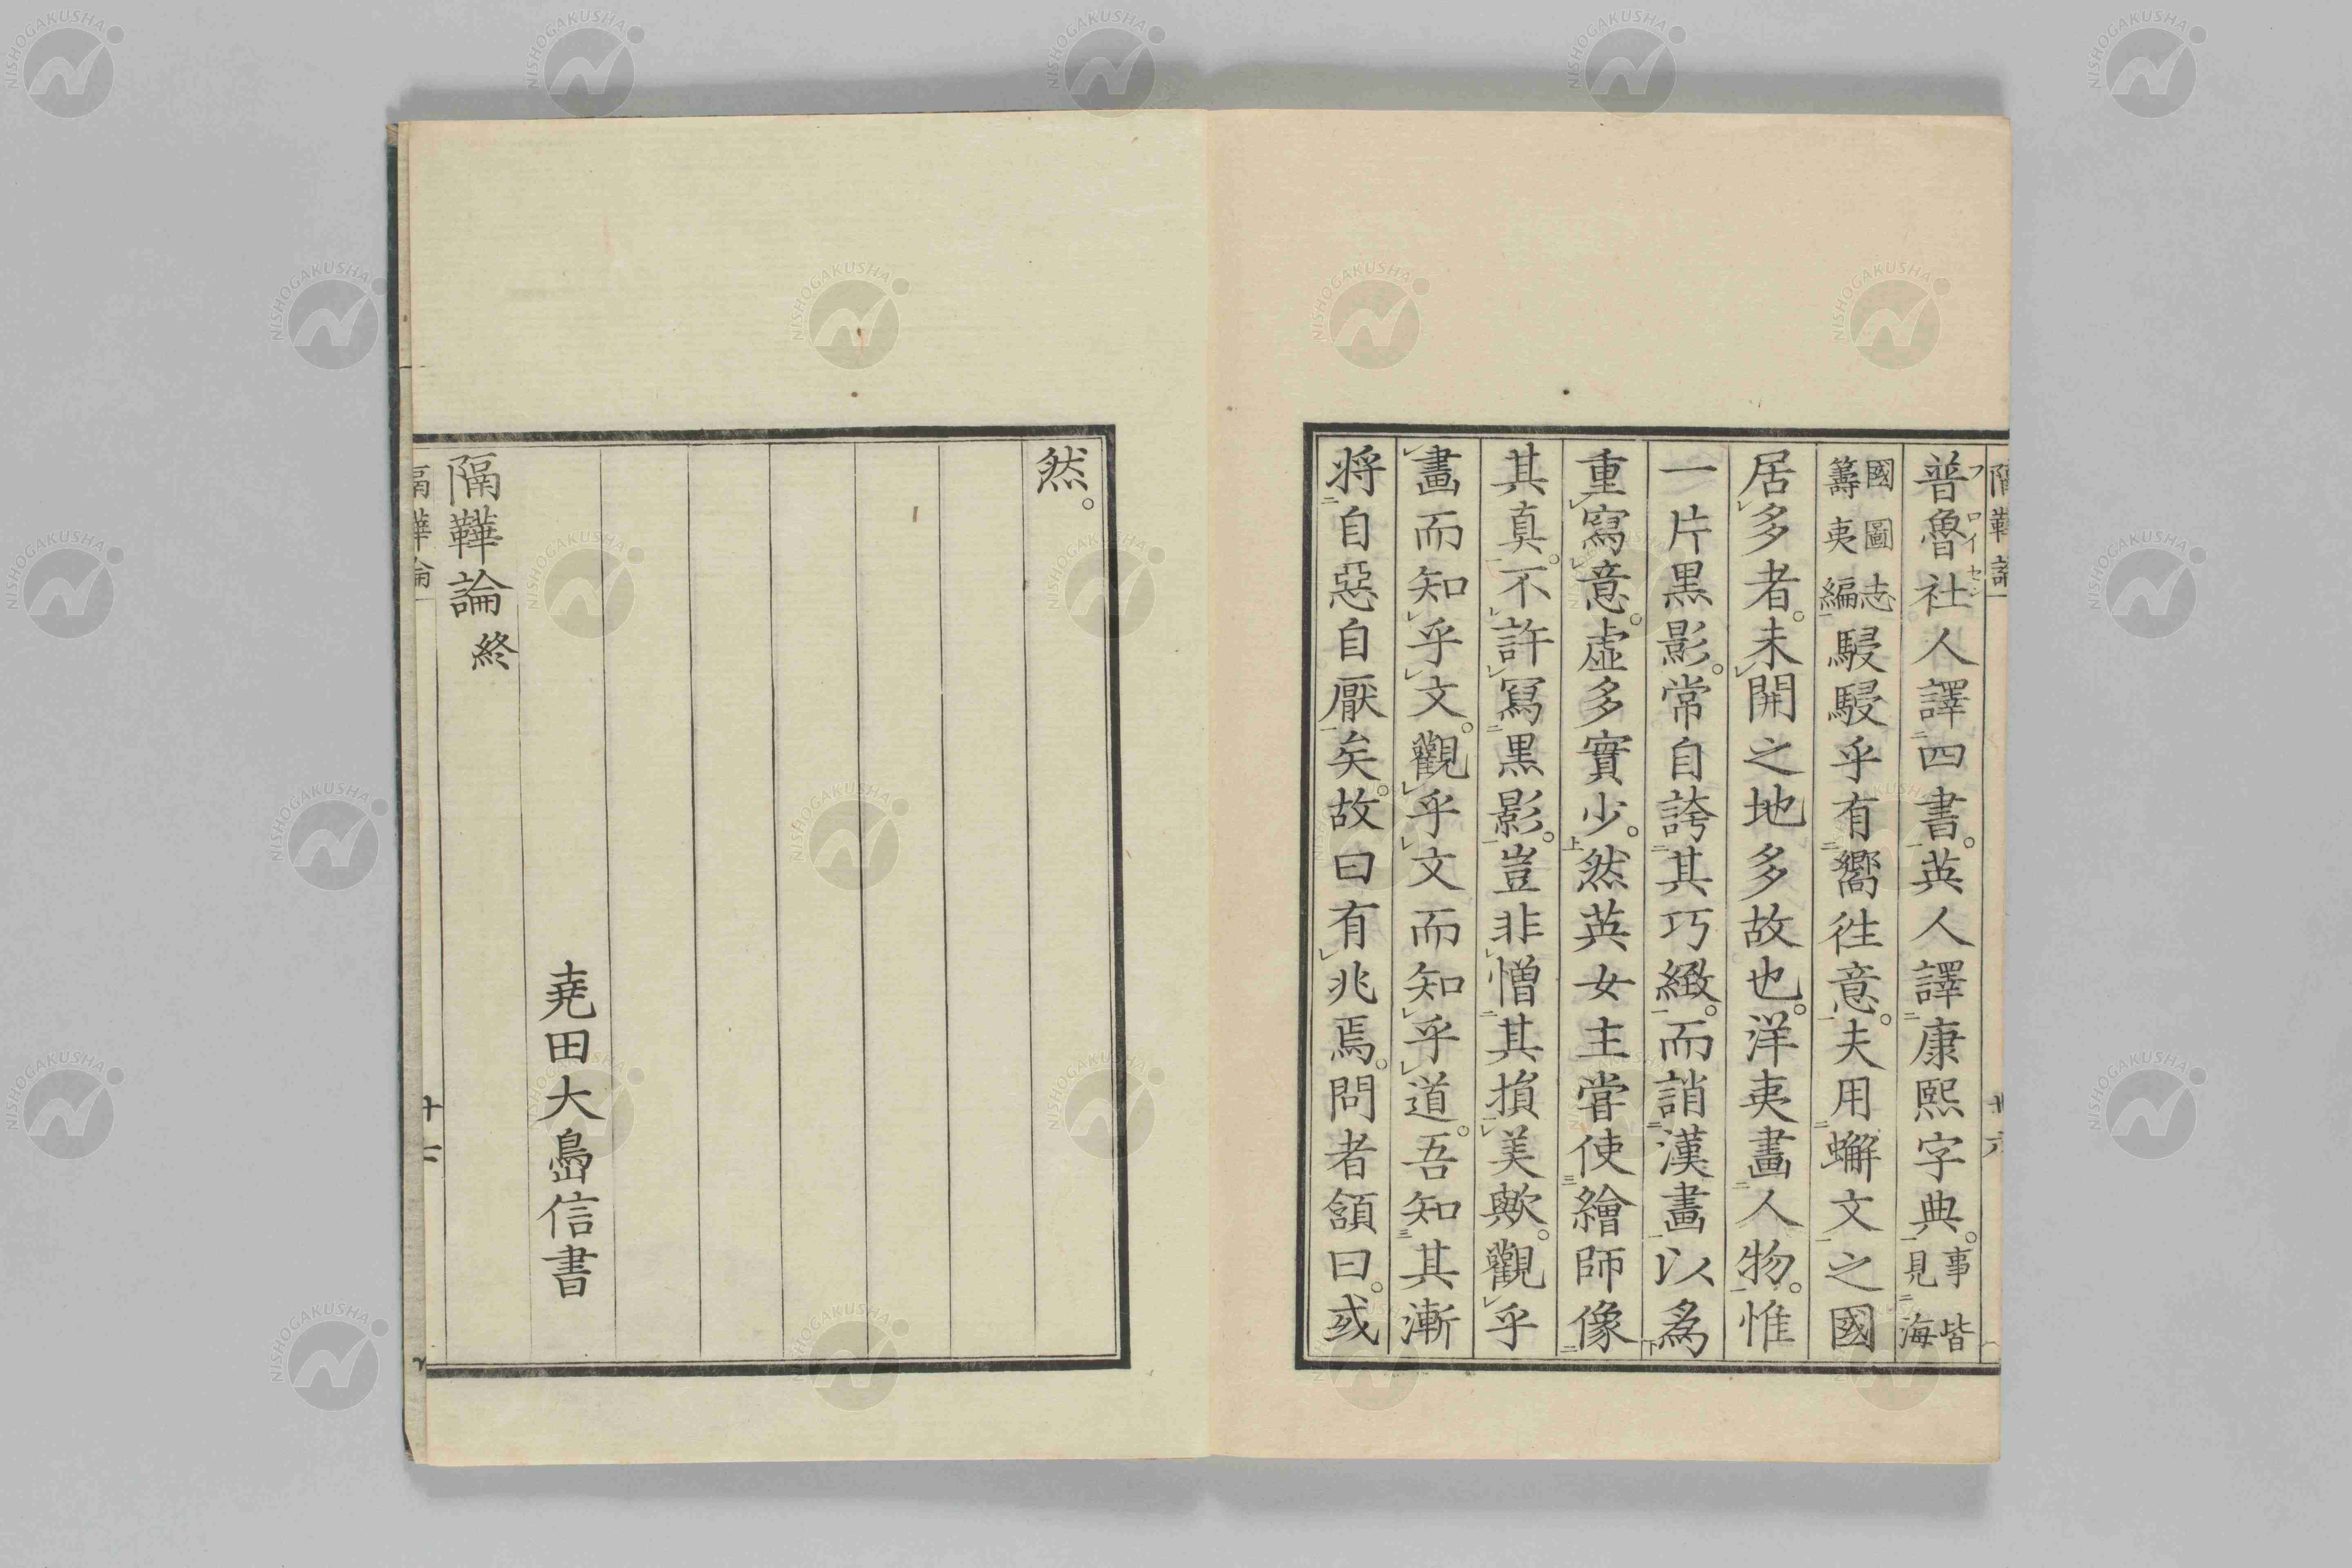 普魯社人譯四書。英人譯康熙字典。事皆見海
國圖志籌夷編駸駸乎有嚮往意。夫用蠏文之國
居多者。未開之地多故也。洋夷畫人物。惟
一片黒影。常自誇其巧緻。而誚漢畫以為
重寫意。虛多實少。然英女主嘗使繪師像
其真。不許冩黒影。豈非憎其損美歟。觀乎
畫而知乎文。觀乎文而知乎道。吾知其漸
將自惡自厭矣。故曰有兆焉。問者頷曰。或
然。
尭田大嶌信書
隔鞾論終
NISHOGAKUSHA